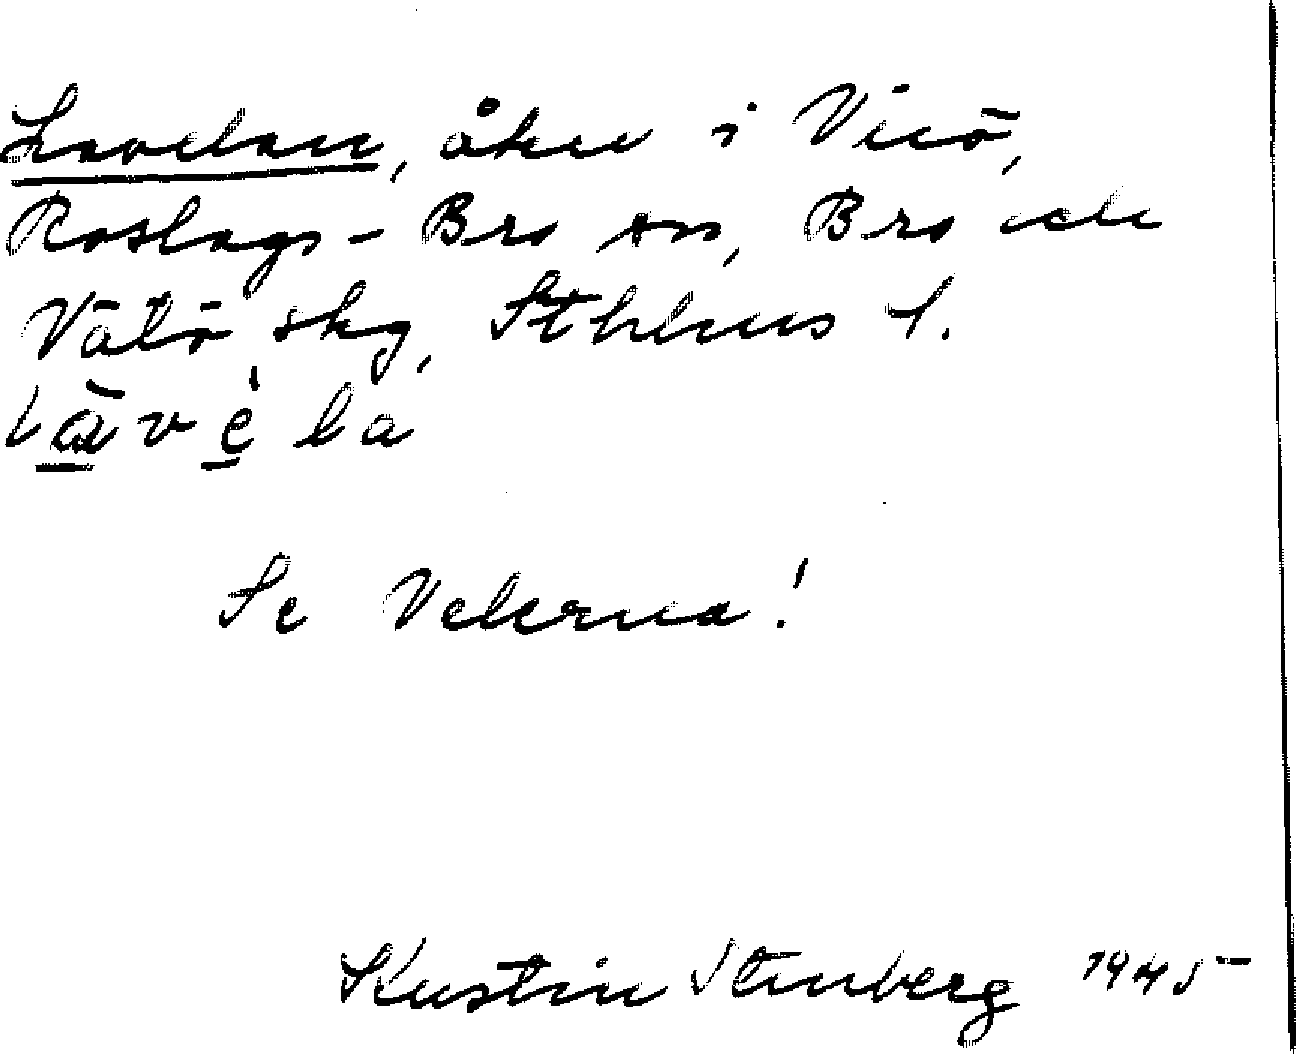 Lavelan, åker i Vicö,
Roslags-Bro sn, Bro och
Vätö skg, Sthlms l.
lāvèla
Se Velerna!
Kerstin Stenberg 1945